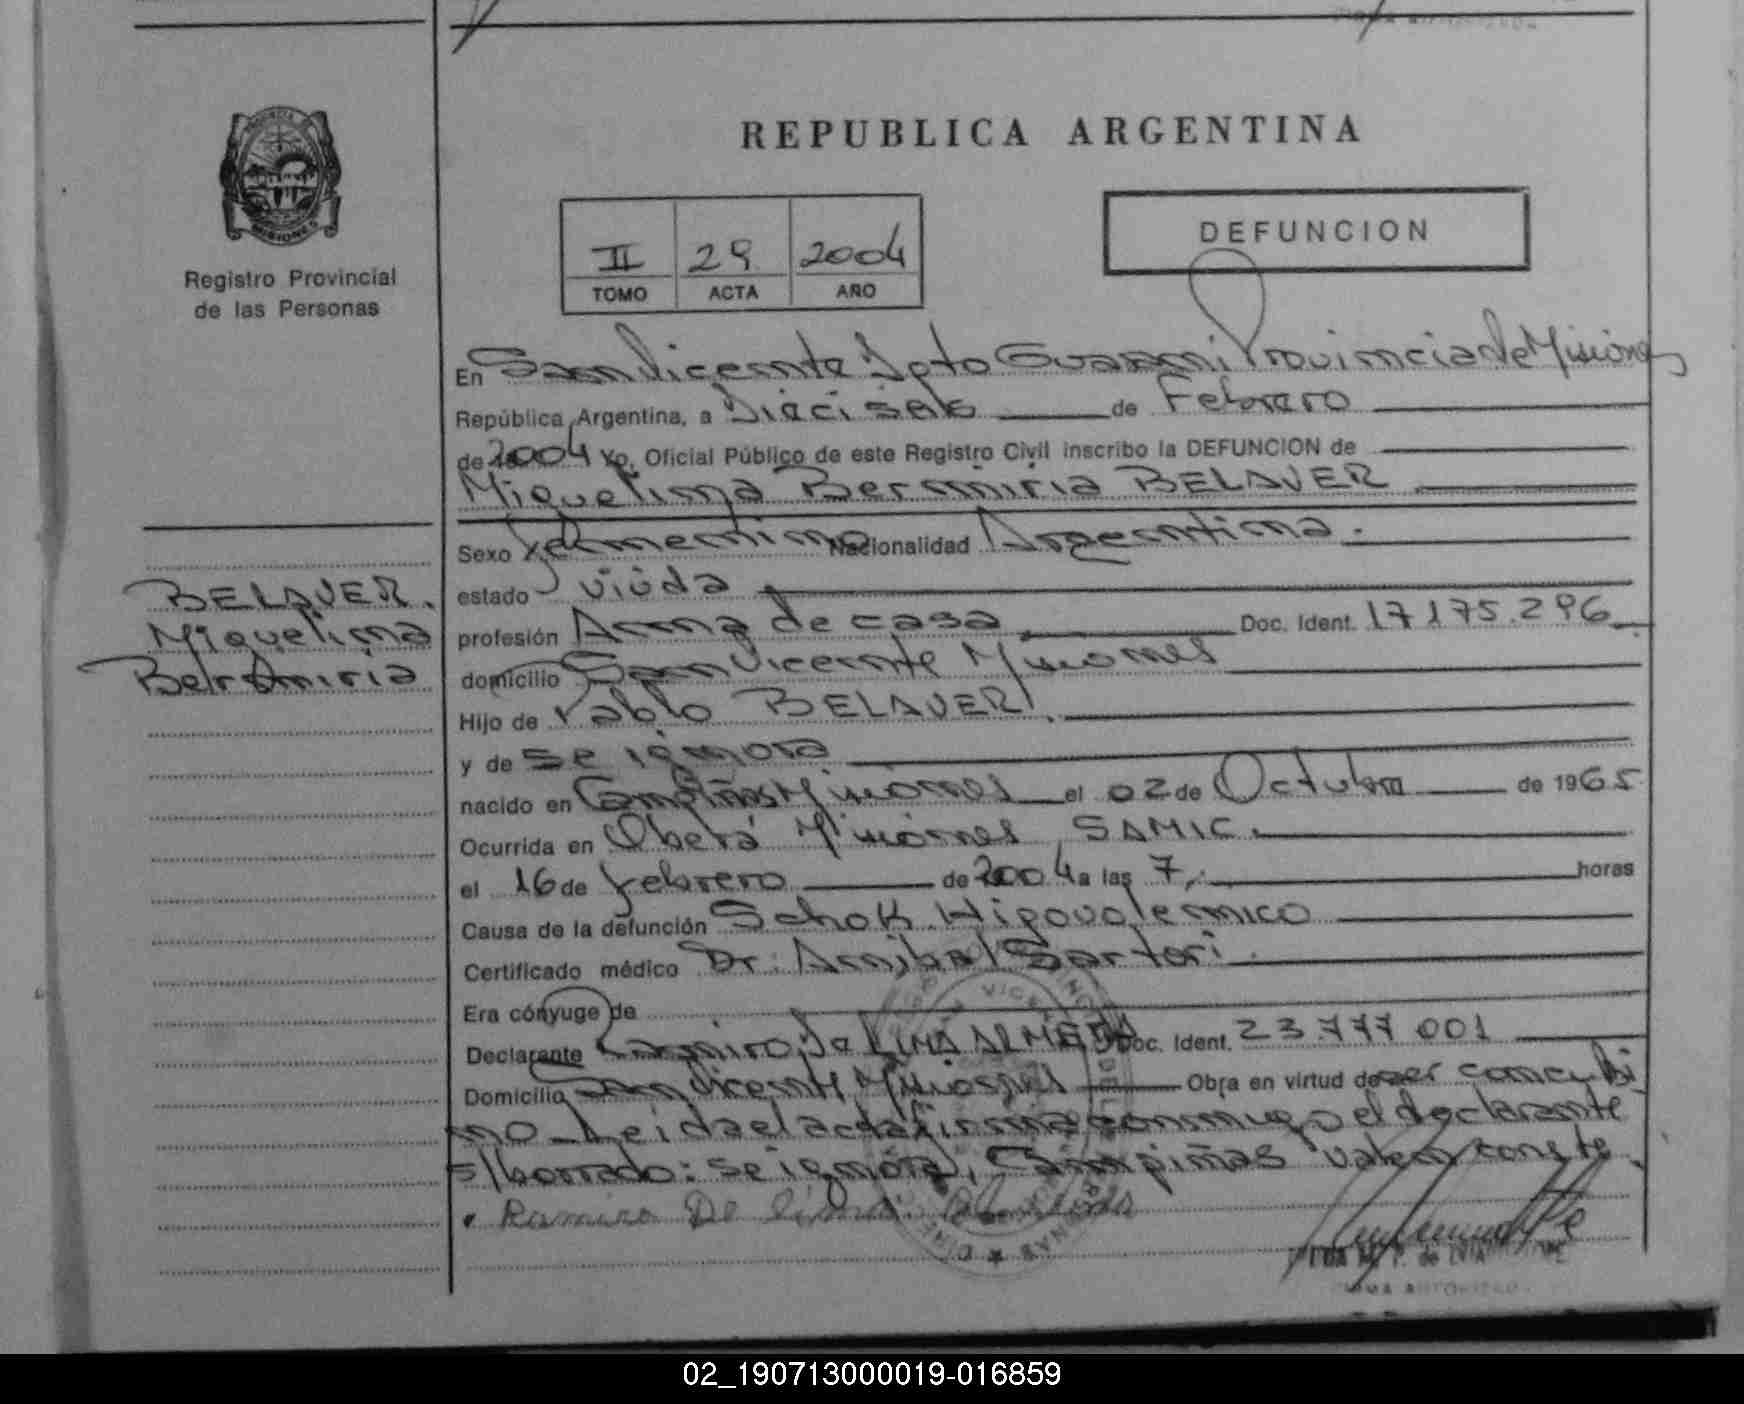 REPUBLICA ARGENTINA
PROVINCIA DE
MISIONES
Registro Provincial
de las Personas
II 29 2004
TOMO ACTA AÑO
DEFUNCION
En San Vicente Dpto Guaraní Provincia de Misiones
República Argentina, a Dieciseis de Febrero
de 2004 Yo, Oficial Público de este Registro Civil inscribo la DEFUNCION de
Miguelina Bermiria BELAVER
Sexo Femenino Nacionalidad Argentina.
estado viuda
profesión Ama de casa Doc. Ident. 17175.296
domicilio San Vicente Misiones
Hijo de Pablo BELAVER.
y de se ignora
nacido en Campiñas Misiones el 02 de Octubre de 1965
Ocurrida en Oberá Misiones SAMIC.
el 16 de febrero de 2004 a las 7, horas
Causa de la defunción Schok Hipovolemico
Certificado médico Dr. Anibal Sartori.
Era cónyuge de
Declarante Ramiro, De LIMA ALMEDA Doc. Ident. 23.777 001
Domicilio San Vicente Misiones Obra en virtud de ser concubi
no Leida el acta firma conmigo el declarante
s/borrado: se ignora, Campiñas valen conste.
Ramiro De Lima
BELAVER.
Miguelina
02_190713000019-016859